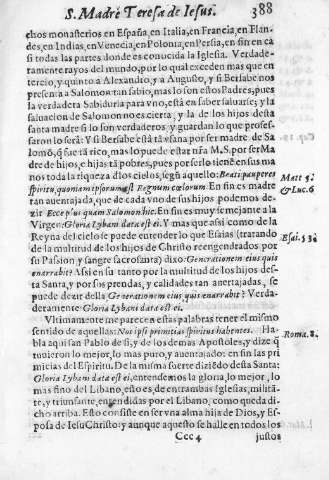 S. Madre Teresa de Iesus. 388
chos monasterios en España, en Italia, en Francia, en Flan-
des, en Indias, en Venecia, en Polonia, en Persia, en fin en ca
si todas las partes donde es conocida la Iglesia. Verdade-
ramente rayos del mundo, por lo qual exceden mas que en
tercio, y quinto a Alexandro, y a Augusto, y si Bersabe nos
presenta a Salomon tan sabio, mas lo son estos Padres, pues
la verdadera Sabiduria para vno, està en saber saluarse; y la
saluacion de Salomon no es cierta, y la de los hijos desta
santa madre si lo son verdaderos y guardan lo que profes-
saron lo serà: Y si Bersabe està tã vfana por ser madre de Sa
lomõ, q̃ fue tã rico, mas lo puede estar nr̃a M. S. por ser Ma
dre de hijos, e hijas tã pobres, pues por serlo tiene en sus ma
nos toda la riqueza d̃ los cielos, segũ aquello: Beati pauperes
spiritu, quoniam ipsorum est Regnum cœlorum. En fin es madre
tan auentajada, que de cada vno de sus hijos podemos de-
zir Ecce plus quam Salomon hic. En fin es muy semejante a la
Virgen: Gloria Lybani data est ei. Y mas que assi como de la
Reyna del cielo se puede entender lo que Esaias (tratando
de la multitud de los hijos de Christo reengendrados por
su Passion, y sangre sacrosanta) dixo: Generationem eius quis
enarrabit? Assi en su tanto por la multitud de los hijos des-
ta Santa, y por sus prendas, y calidades tan auertajadas, se
puede dezir della Generationem eius quis enarrabit? Verda-
deramente Gloria Lybani data est ei.
Vltimamente me parecen estas palabras tener el mismo
sentido de aquellas: Nos ipsi primitias spiritus habentes. Ha-
bla aqui san Pablo de si, y de los demas Apostoles, y dize q̃
tuuieron lo mejor, lo mas puro, y auentajado: en fin las pri
micias del Espiritu. De la misma suerte diziẽdo desta Santa:
Gloria Lybani data est ei, entendemos la gloria, lo mejor, lo
mas fino del Libano, esto es, de entrambas Iglesias, militã-
te, y triunfante, entendidas por el Libano, como queda di-
cho arriba. Esto consiste en ser vna alma hija de Dios, y Es-
posa de Iesu Christo; y aunque aquesto se halle en todos los
Ccc 4 justos
Matt 5.
& Luc. 6
Esai. 53.
Roma. 8.